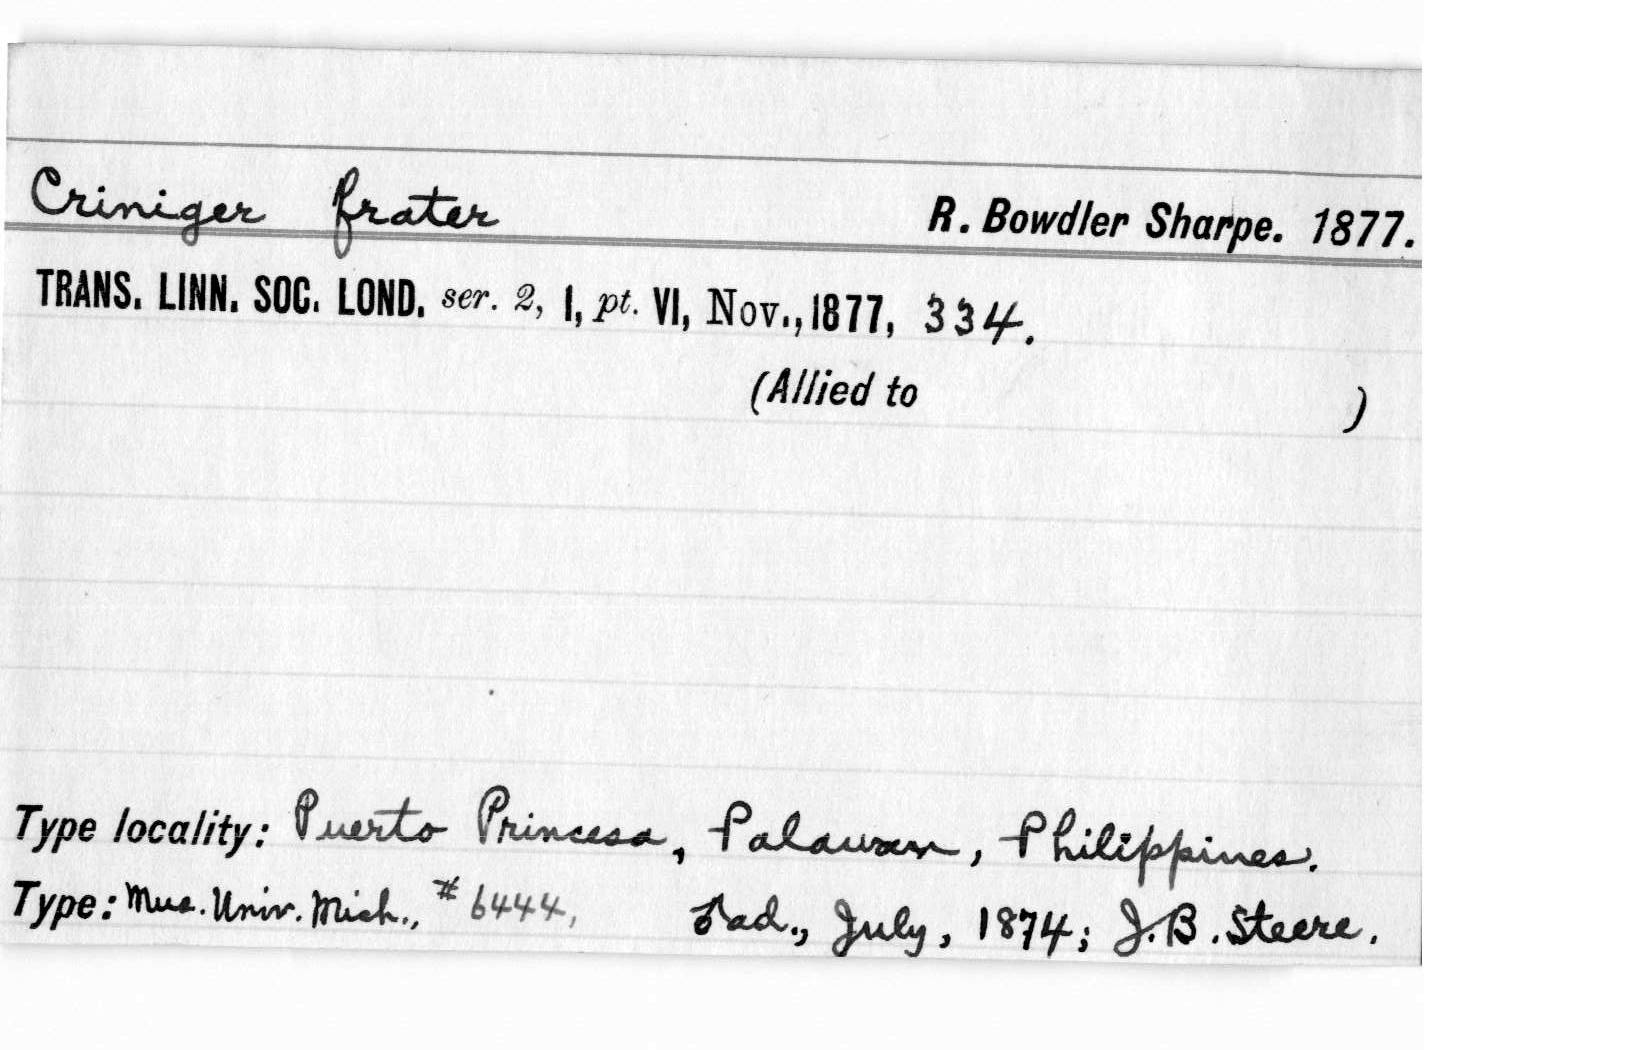 Criniger frater R. Bowdler Sharpe. 1877.
TRANS. LINN. SOC. LOND. ser. 2, I, pt. VI, Nov., 1877, 334.
(Allied to )
Type locality: Puerto Princesa, Palawan, Philippines.
Type: Mus. Univ. Mich., # 6444, ♂ad., July, 1874; J.B. Steere.